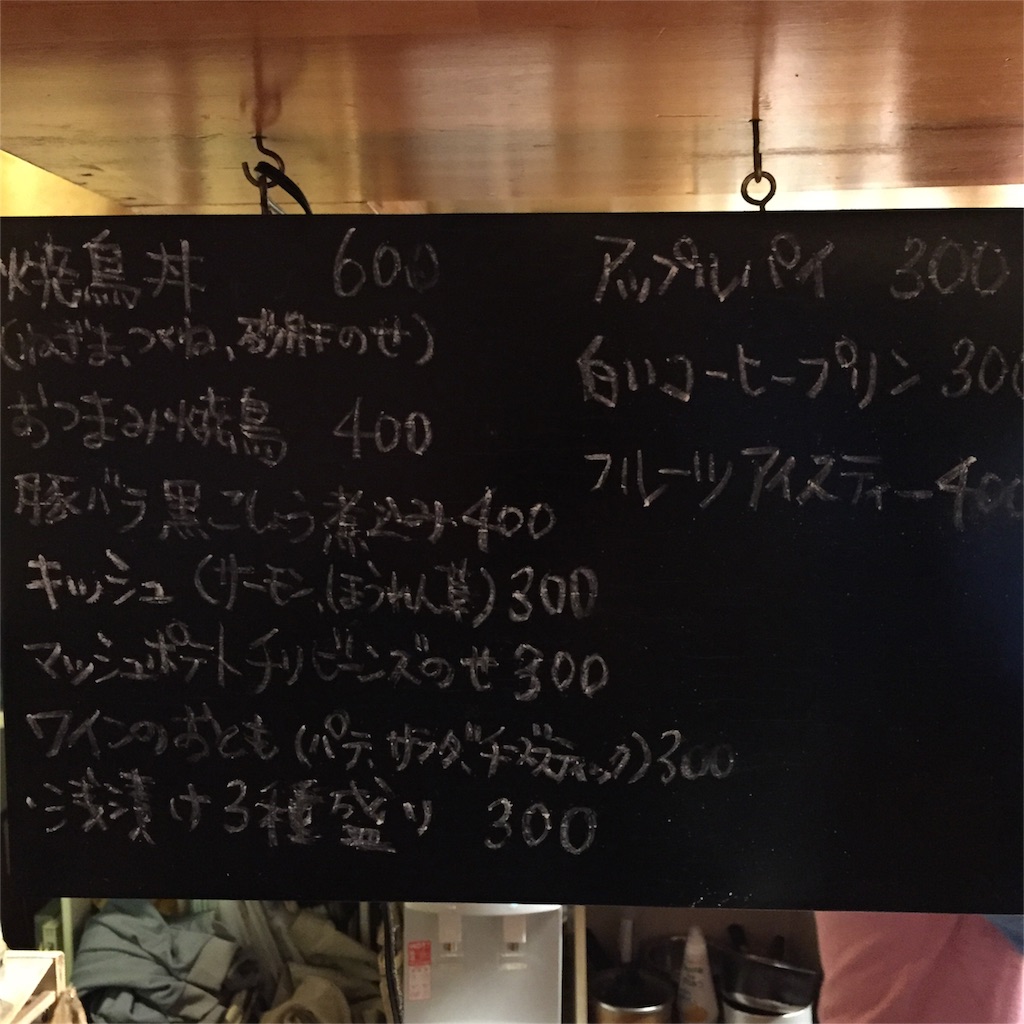 焼鳥丼 600
(ねぎま、つくね、砂肝のせ)
おつまみ焼鳥 400
豚バラ黒こしょう煮込み 400
キッシュ(サーモン、ほうれん草) 300
マッシュポテトチリビーンズのせ 300
ワインのおとも(パテ、サラダ、チーズスティック) 300
浅漬け3種盛り 300
アップルパイ 300
白いコーヒープリン 300
フルーツアイスティー 400